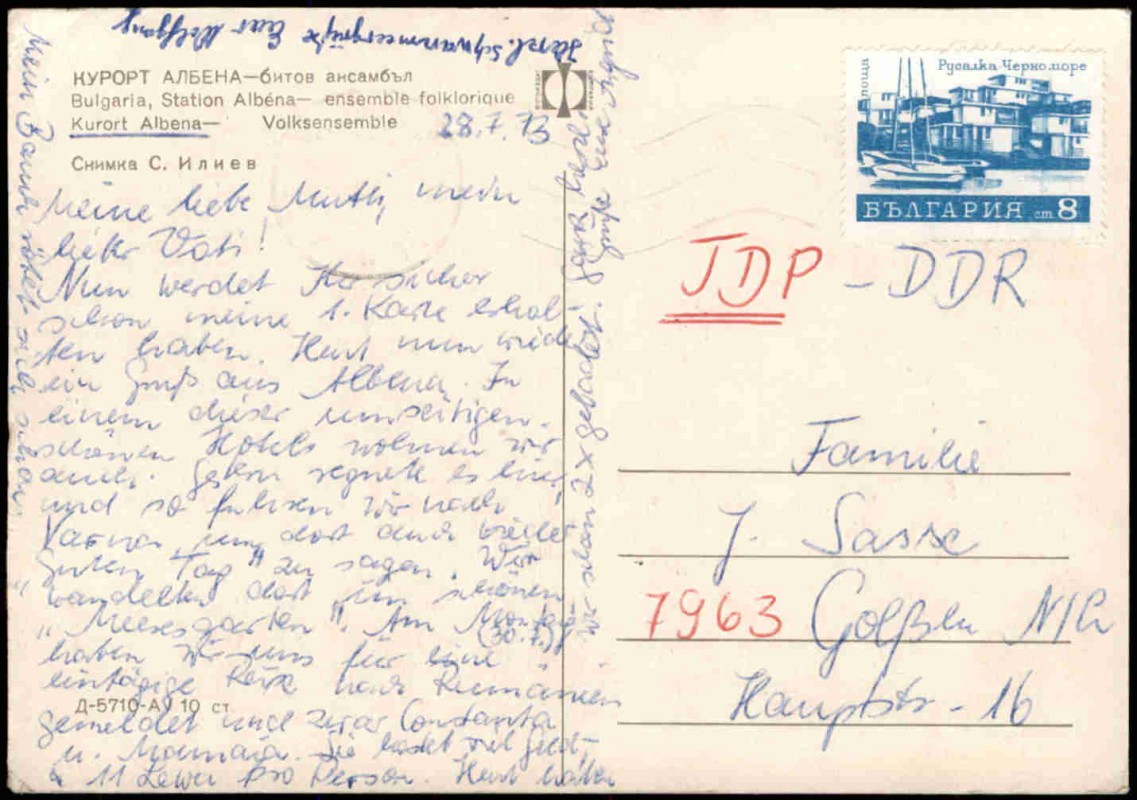 Herzl. Schwimmergrüße Euer Wolfgang
КУРОРТ АЛБЕНА—битов ансамбъл
Bulgaria, Station Albéna— ensemble folklorique
Kurort Albena— Volksensemble
28.7.73
Снимка С. Илиев
Meine liebe Mutti, mein
lieber Vati!
Nun werdet Ihr sicher
schon meine 1. Karte erhal-
ten haben. Heut nun wieder
ein Gruß aus Albena. In
einem dieser umseitigen
schönen Hotels wohnen wir
auch. Gestern regnete es hier,
und so fuhren wir nach
Varna, um dort auch wieder
"Guten Tag" zu sagen. Wir
wandelten dort im schönen
"Meeresgarten". Am Montag
(30.7.)
haben wir uns für eine
eintägige Reise nach Rumänien
gemeldet und zwar Constanta
u. Mamaia. Sie kostet viel Geld,
11 Lewa pro Person. Heut haben
wir schon 2x gebadet.
Mein Bauch rötet sich schon
Д-5710-АV 10 ст
поща
Русалка-Черно море
БЪЛГАРИЯ ст 8
JDP - DDR
Familie
J. Sasse
7963 Golßen N/L
Hauptstr - 16